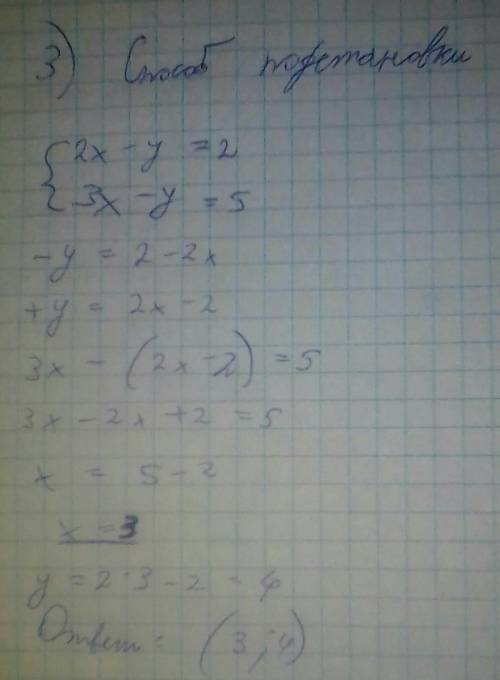 3) Способ подстановки
{2x - y = 2
3x - y = 5
-y = 2 - 2x
+y = 2x - 2
3x - (2x - 2) = 5
3x - 2x + 2 = 5
x = 5 - 2
x = 3
y = 2·3 - 2 = 4
Ответ: (3; 4)